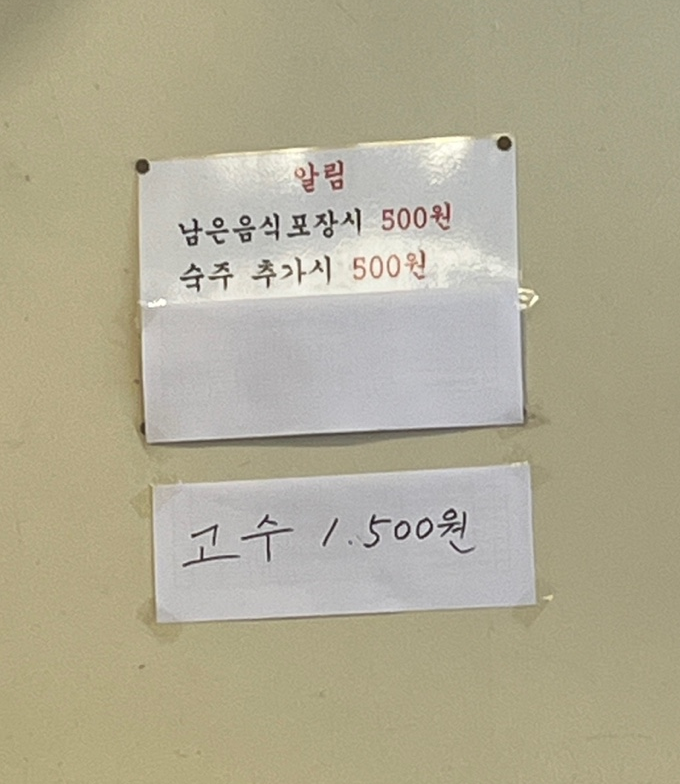 알림
남은음식포장시 500원
숙주 추가시 500원
고수 1.500원